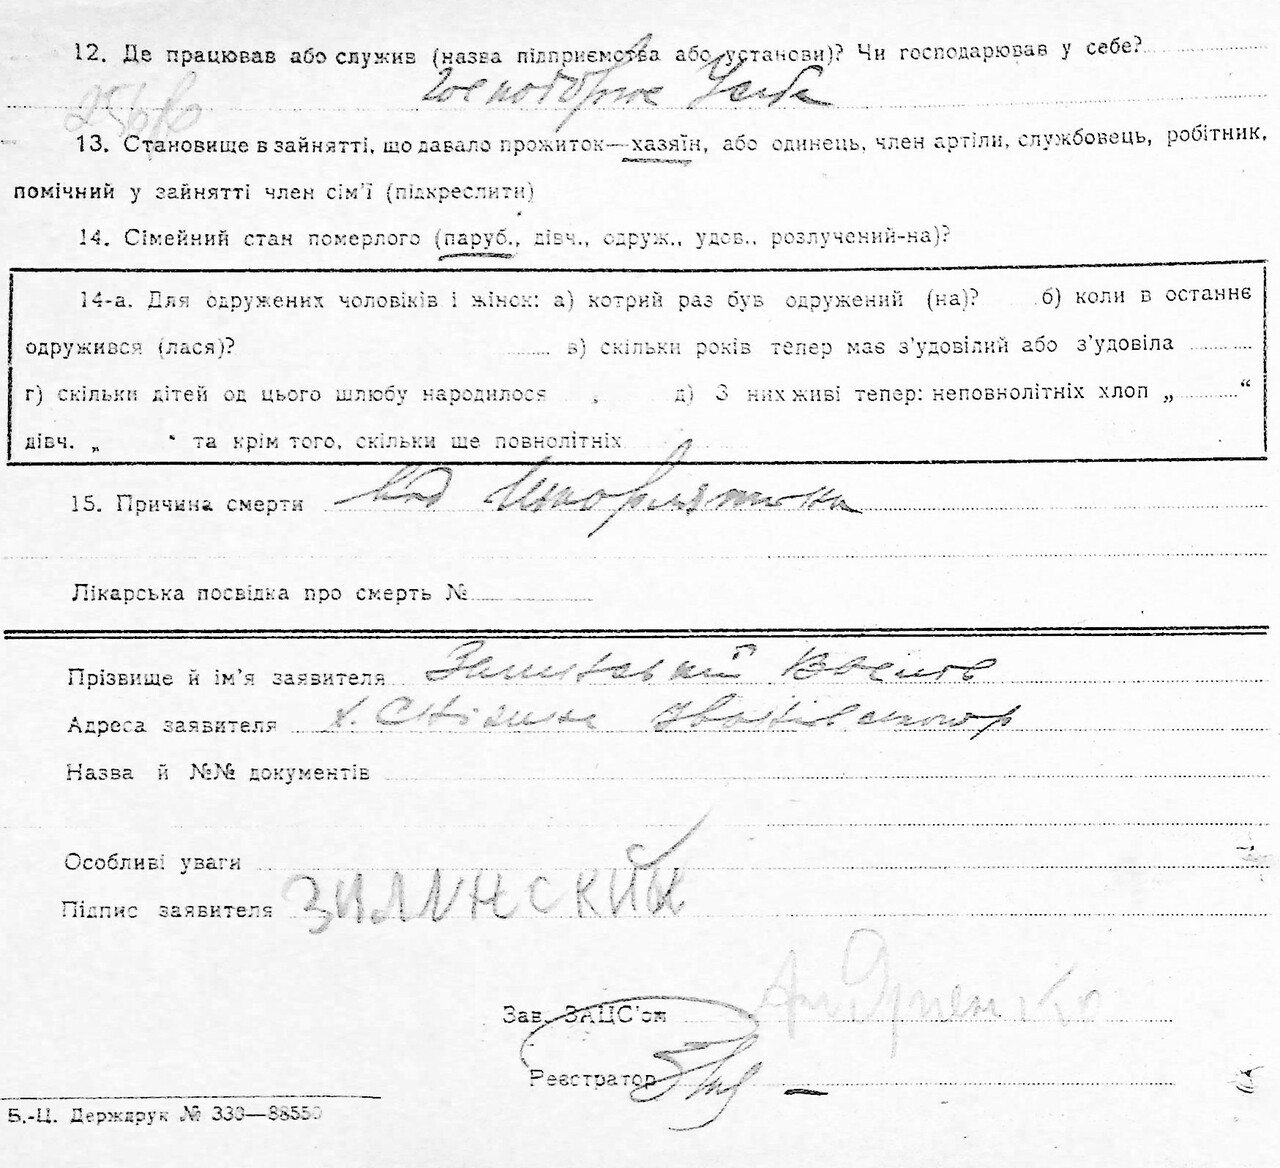 12. Де працював або служив (назва підприємства або установи)? Чи господарював у себе?
13. Становище в зайнятті, що давало прожиток—хазяїн, або одинець, член артіли, службовець, робітник,
помічний у зайнятті член сім’ї (підкреслити)
14. Сімейний стан померлого (паруб., дівч., одруж., удов., розлучений-на)?
14-а. Для одружених чоловіків і жінок: а) котрий раз був одружений (на)? б) коли в останнє
одружився (лася)? в) скільки років тепер має з’удовілий або з’удовіла
г) скільки дітей од цього шлюбу народилося , д) З них живі тепер: неповнолітніх хлоп „ “
дівч. „ “ та крім того, скільки ще повнолітніх
15. Причина смерти
Лікарська посвідка про смерть №
Прізвище й ім’я заявителя
Адреса заявителя х.
Назва й №№ документів
Особливі уваги
Підпис заявителя Зилинский
Зав. ЗАЦС’ом
Реєстратор
Б.-Ц. Держдрук № 330—88550